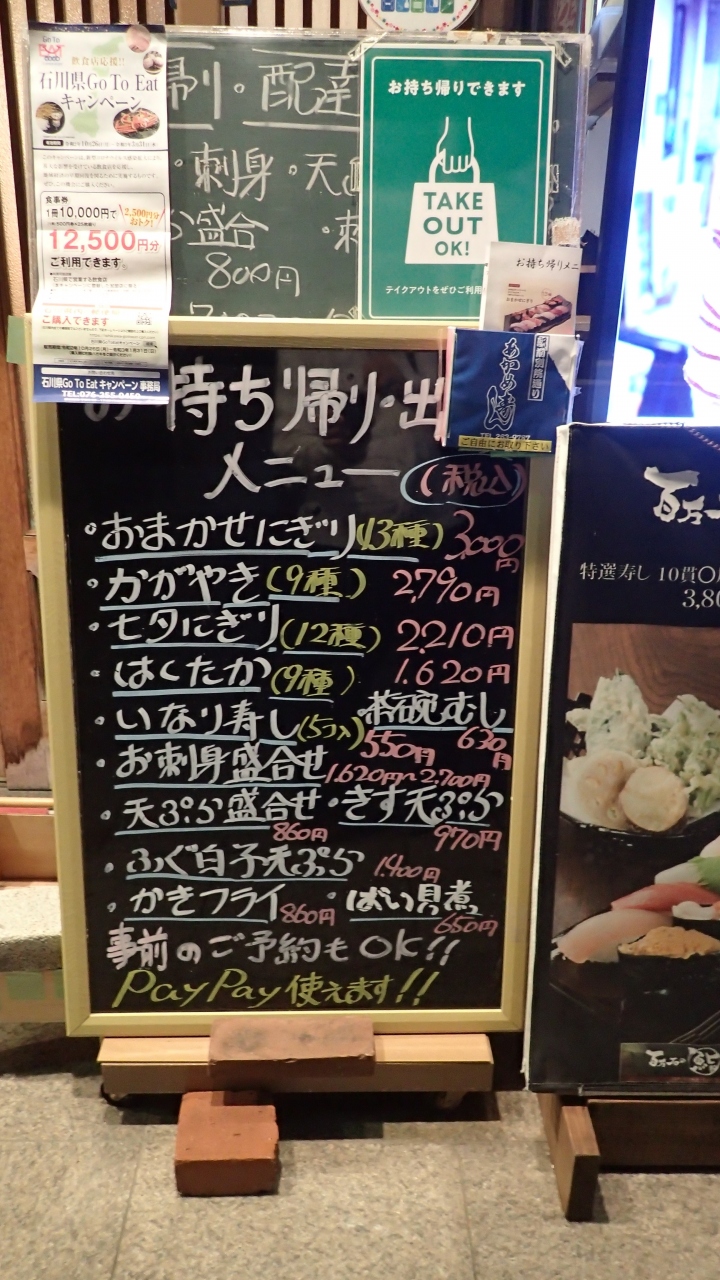 Go To Eat
飲食店応援!!
石川県Go To Eat
キャンペーン
食事券
1冊10,000円で
2,500円分
おトク!
12,500円分
ご利用できます
ご購入できます
石川県Go To Eat キャンペーン 事務局
帰り・配達
・刺身・天
盛合
800円
お持ち帰りできます
TAKE
OUT
OK!
テイクアウトをぜひご利用
お持ち帰りメニ
ご自由にお取り下さい
お持ち帰り・出
メニュー(税込)
・おまかせにぎり(13種) 3,000円
・かがやき(9種) 2,790円
・七夕にぎり(12種) 2,210円
・はくたか(9種) 1,620円
・いなり寿し(5コ入) 550円 ・茶碗むし 630円
・お刺身盛合せ 1,620円〜2,700円
・天ぷら盛合せ 860円 ・きす天ぷら 970円
・ふぐ白子天ぷら 1,400円
・かきフライ 860円 ・ばい貝煮 650円
事前のご予約もOK!!
PayPay使えます!!
百万
特選寿し 10貫
3,80
百万石の鮨